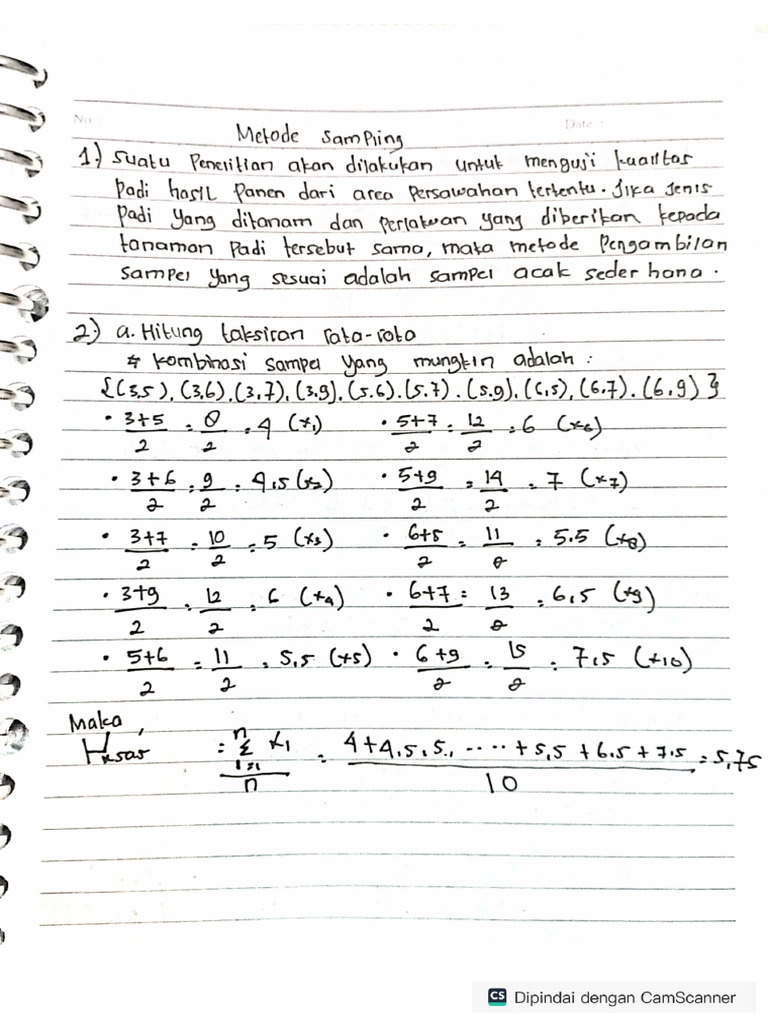 No :
Date :
Metode Sampling
1.) Suatu Penelitian akan dilakukan untuk menguji kualitas
Padi hasil panen dari area Persawahan tertentu. Jika Jenis
Padi yang ditanam dan Perlakuan yang diberikan kepada
tanaman Padi tersebut sama, maka metode Pengambilan
sampel yang sesuai adalah sampel acak sederhana.
2.) a. Hitung taksiran rata-rata
# kombinasi sampel yang mungkin adalah :
{(3,5), (3,6), (3,7), (3,9), (5.6). (5.7). (5.9), (6,5), (6.7). (6.9)}
• 3+5/2 = 8/2 = 4 (x1) • 5+7/2 = 12/2 = 6 (x6)
• 3+6/2 = 9/2 = 4,5 (x2) • 5+9/2 = 14/2 = 7 (x7)
• 3+7/2 = 10/2 = 5 (x3) • 6+5/2 = 11/2 = 5.5 (x8)
• 3+9/2 = 12/2 = 6 (x4) • 6+7/2 = 13/2 = 6,5 (x9)
• 5+6/2 = 11/2 = 5,5 (x5) • 6+9/2 = 15/2 = 7,5 (x10)
Maka,
Hxsar = n Σ i=1 xi / n = 4+4,5,5, .... + 5,5 + 6.5 + 7.5 / 10 = 5,75
CS Dipindai dengan CamScanner